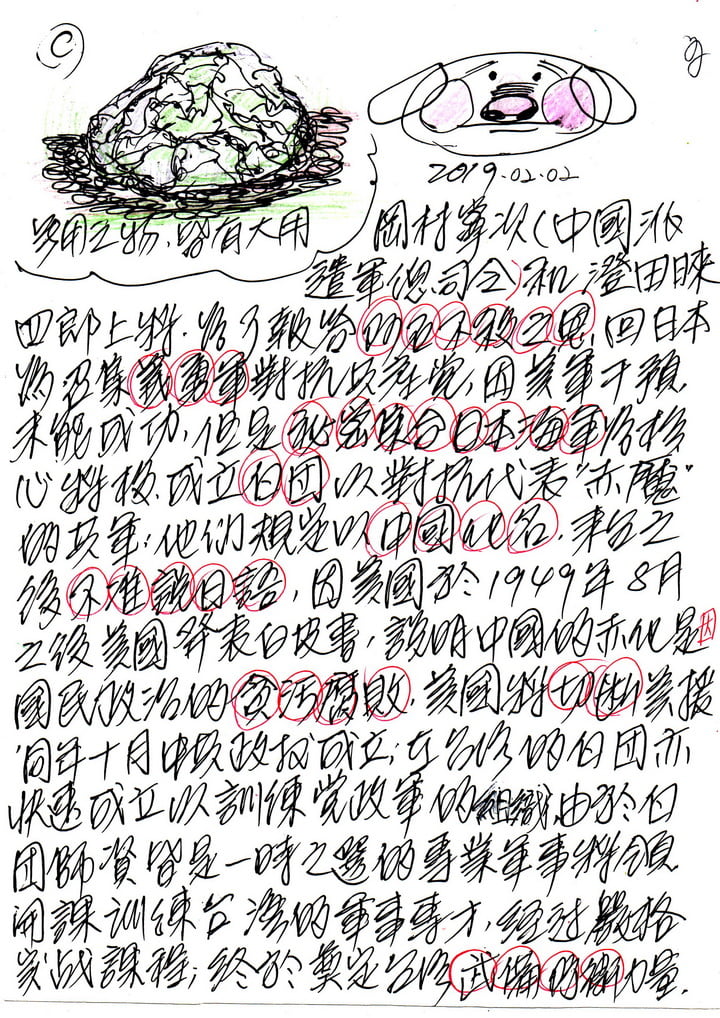 C
2019.02.02
無用之物,皆有大用
岡村寧次(中國派
遣軍總司令)和澄田睞
四郎上將.為了報答的不殺之恩,回日本
為召集義勇軍對抗共產党,因美軍干預
未能成功,但是秘密集合日本海軍為核
心將校.成立白團以對抗代表"赤魔"
的共軍;他們規定以中國化名.來台之
後不准說日語,因美國於1949年8月
之後美國發表白皮書,說明中國的赤化是因
國民政治的貪污腐敗.美國將切斷美援
同年十月中共政权成立;在台灣的白團亦
快速成立以訓練党政軍的組織.由於白
團師資皆是一時之選的專業軍事將領
開課訓練台灣的軍事專才,經过嚴格
实战課程;終於奠定台灣武備防衛力量.